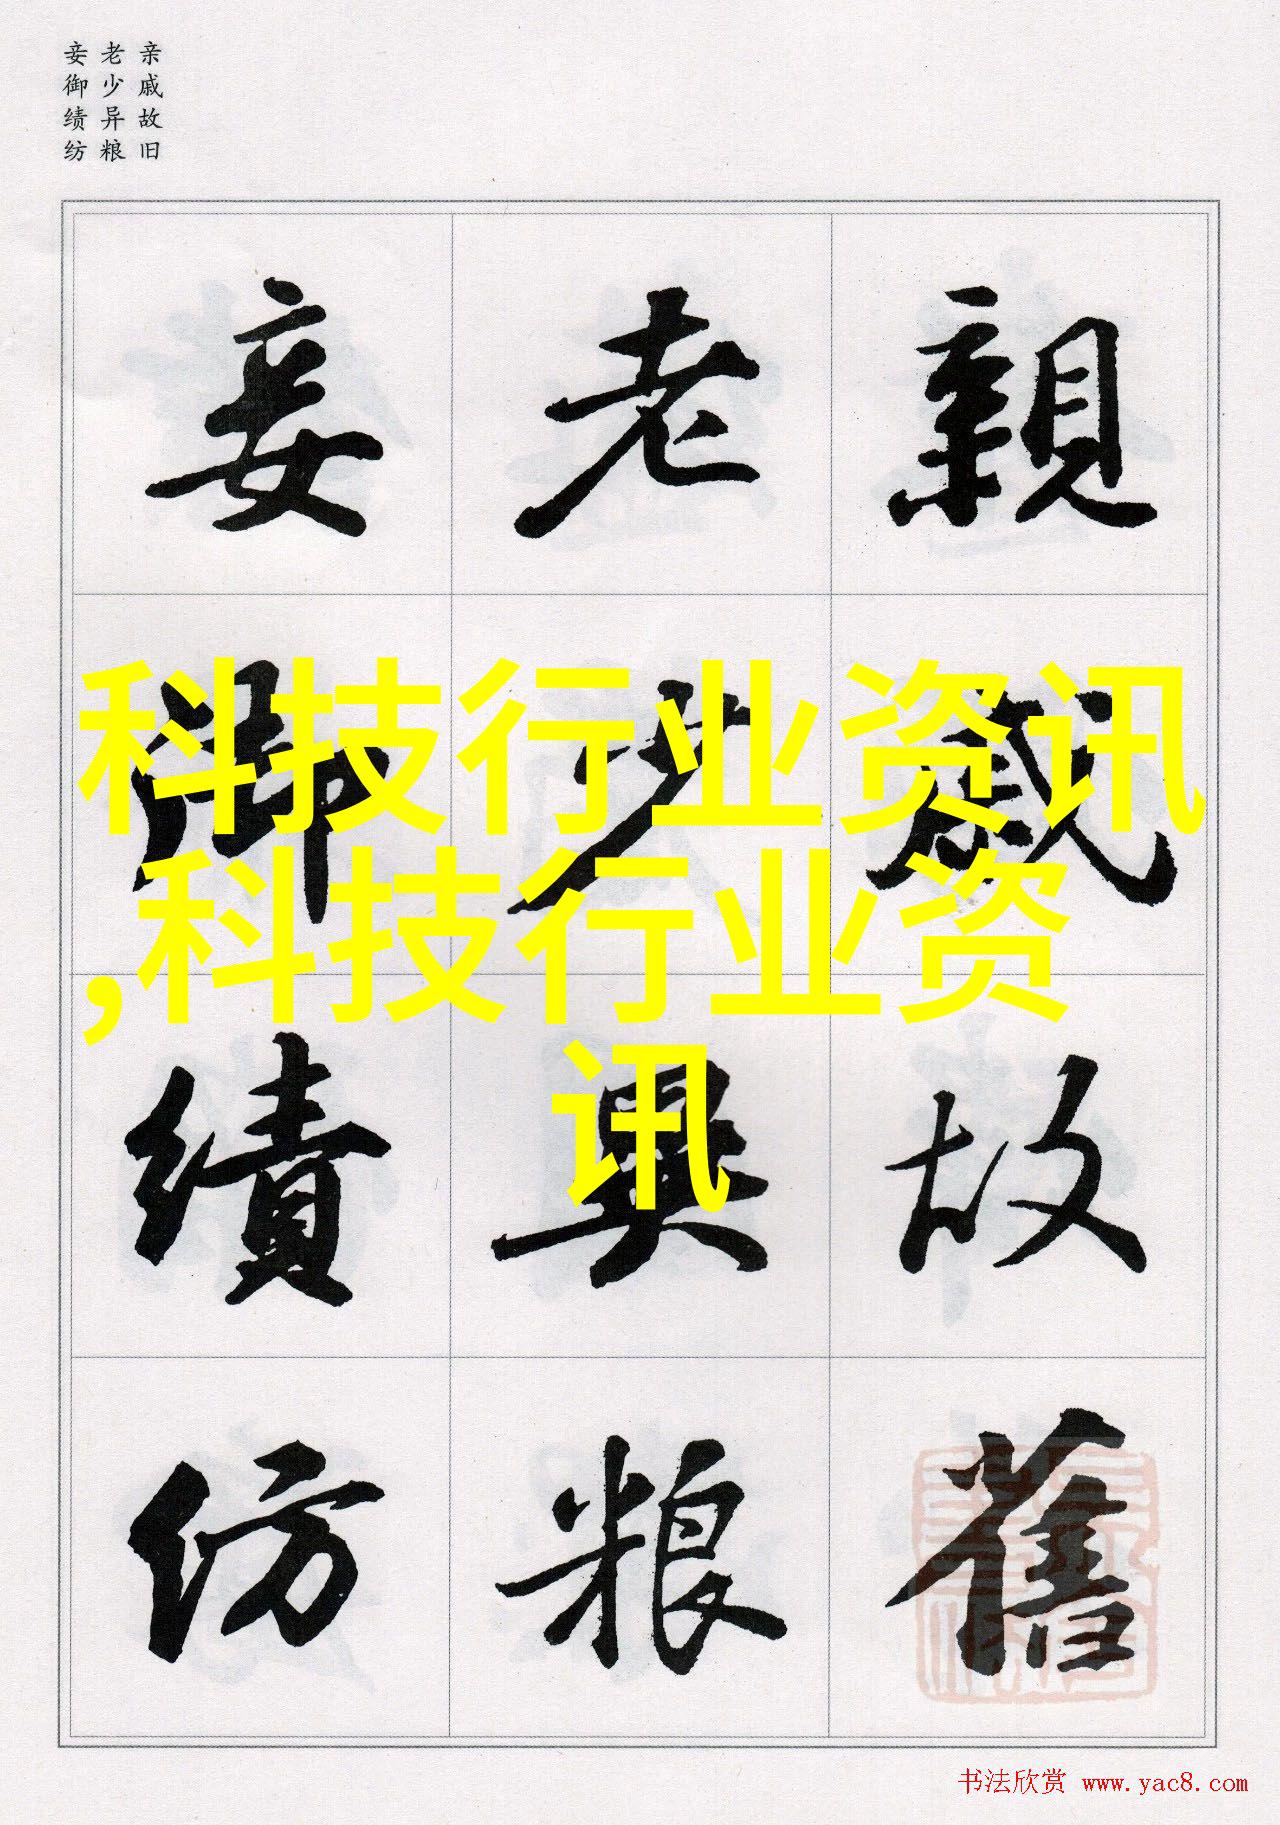 亲戚故旧
老少异粮
妾御绩纺
親戚故舊
老少異粮
妾御績紡
科技行业资讯
,科技行业资
讯
书法欣赏 www.yac8.com